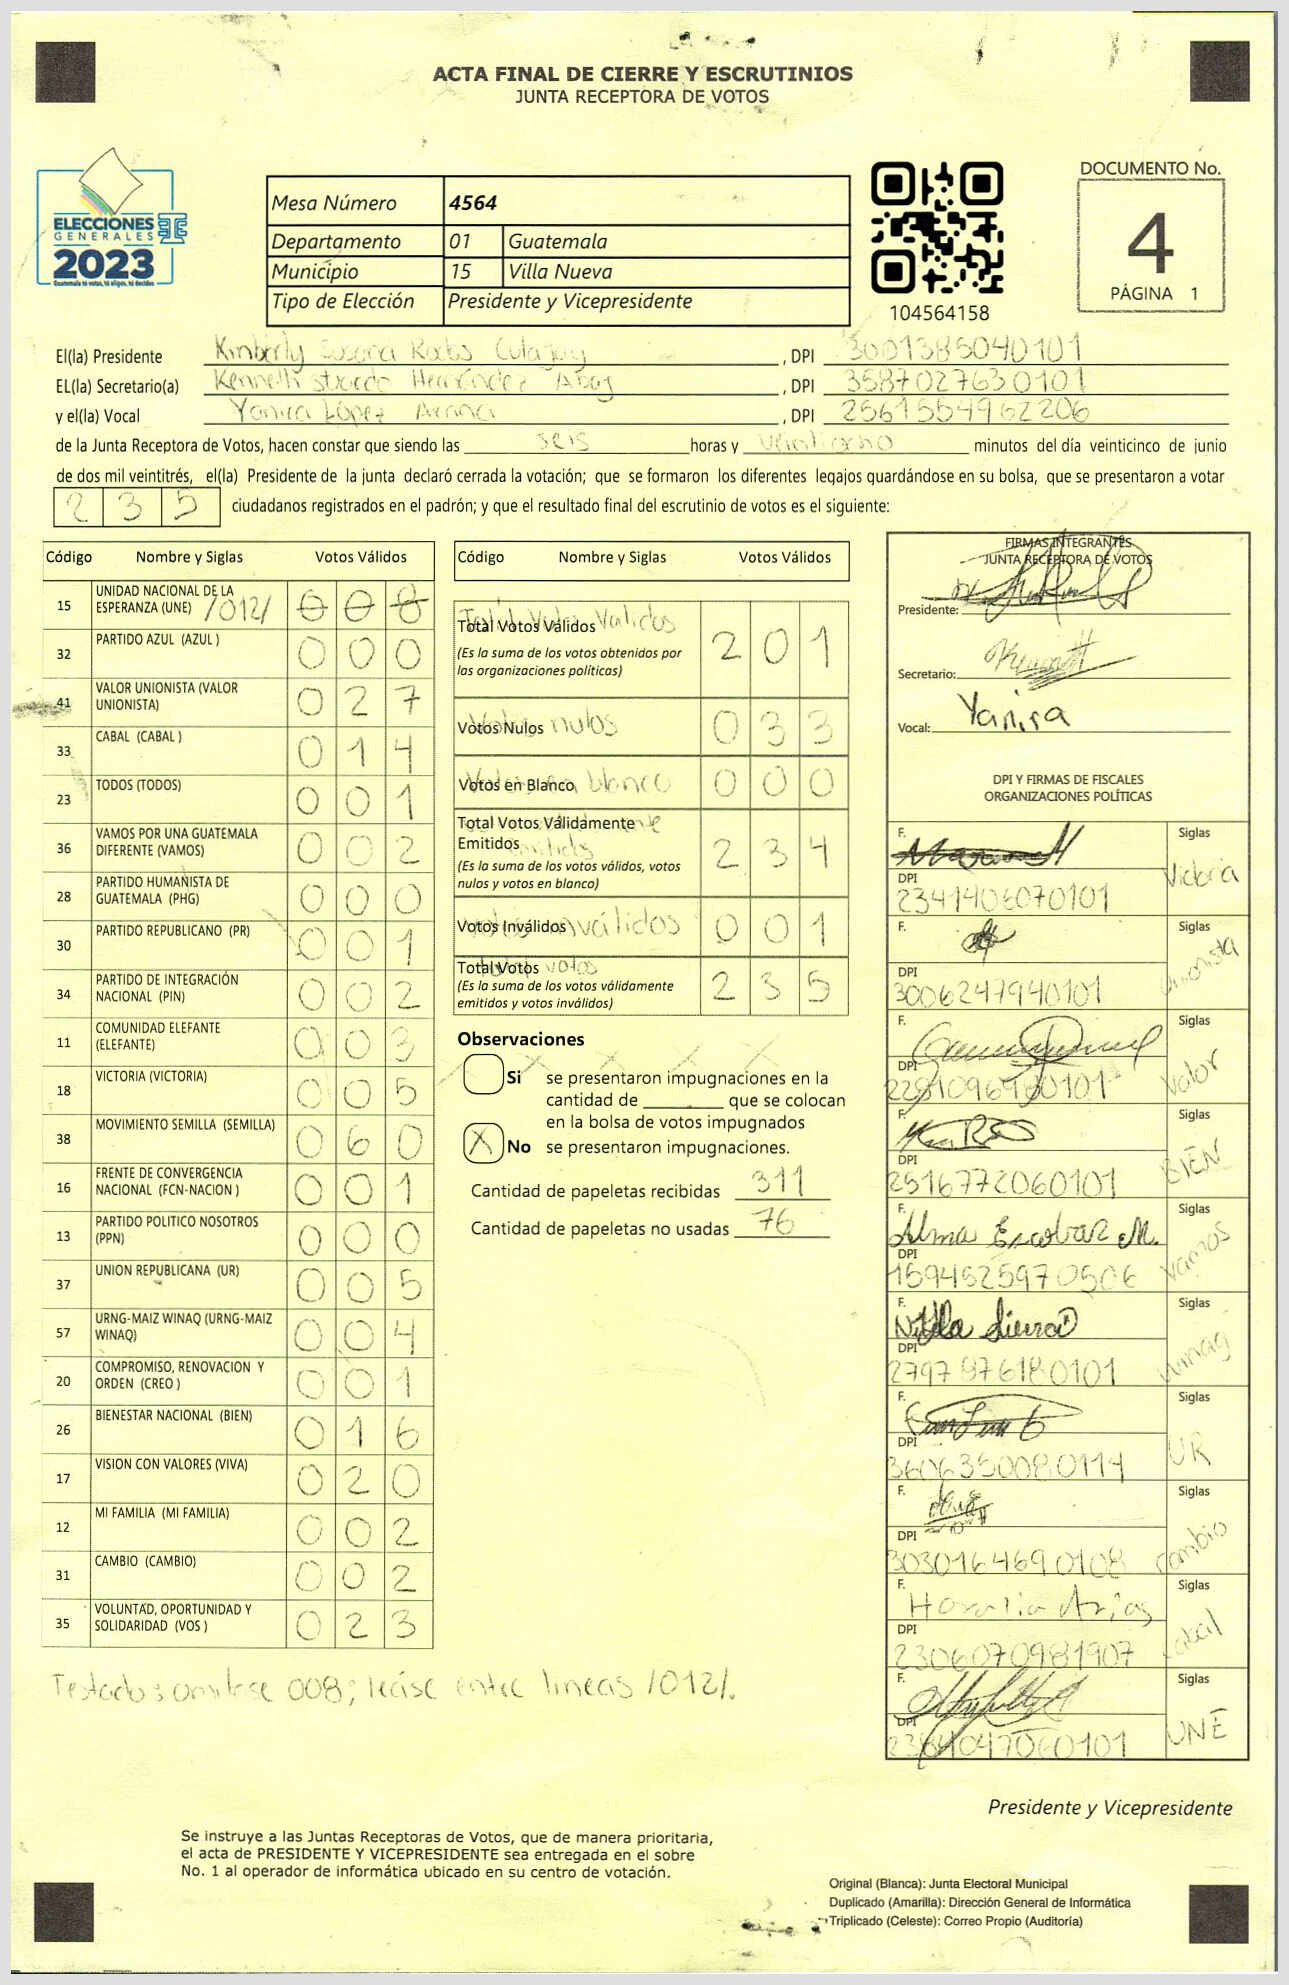 ACTA FINAL DE CIERRE Y ESCRUTINIOS
JUNTA RECEPTORA DE VOTOS
ELECCIONES
GENERALES
2023
Guatemala tú votas, tú eliges, tú decides
Mesa Número 4564
Departamento 01 Guatemala
Municipio 15 Villa Nueva
Tipo de Elección Presidente y Vicepresidente
104564158
DOCUMENTO No.
4
PÁGINA 1
El(la) Presidente Kimberly Susana Rodas Culajay, DPI 3001385040101
EL(la) Secretario(a) Kenneth Hernández, DPI 3587027630101
y el(la) Vocal Yanira López Arana, DPI 2561554962206
de la Junta Receptora de Votos, hacen constar que siendo las seis horas y veintiocho minutos del día veinticinco de junio
de dos mil veintitrés, el(la) Presidente de la junta declaró cerrada la votación; que se formaron los diferentes legajos guardándose en su bolsa, que se presentaron a votar
2 3 5 ciudadanos registrados en el padrón; y que el resultado final del escrutinio de votos es el siguiente:
Código Nombre y Siglas Votos Válidos
15 UNIDAD NACIONAL DE LA ESPERANZA (UNE) /012/ 0 0 8
32 PARTIDO AZUL (AZUL ) 0 0 0
41 VALOR UNIONISTA (VALOR UNIONISTA) 0 2 7
33 CABAL (CABAL ) 0 1 4
23 TODOS (TODOS) 0 0 1
36 VAMOS POR UNA GUATEMALA DIFERENTE (VAMOS) 0 0 2
28 PARTIDO HUMANISTA DE GUATEMALA (PHG) 0 0 0
30 PARTIDO REPUBLICANO (PR) 0 0 1
34 PARTIDO DE INTEGRACIÓN NACIONAL (PIN) 0 0 2
11 COMUNIDAD ELEFANTE (ELEFANTE) 0 0 3
18 VICTORIA (VICTORIA) 0 0 5
38 MOVIMIENTO SEMILLA (SEMILLA) 0 6 0
16 FRENTE DE CONVERGENCIA NACIONAL (FCN-NACION ) 0 0 1
13 PARTIDO POLITICO NOSOTROS (PPN) 0 0 0
37 UNION REPUBLICANA (UR) 0 0 5
57 URNG-MAIZ WINAQ (URNG-MAIZ WINAQ) 0 0 4
20 COMPROMISO, RENOVACION Y ORDEN (CREO ) 0 0 1
26 BIENESTAR NACIONAL (BIEN) 0 1 6
17 VISION CON VALORES (VIVA) 0 2 0
12 MI FAMILIA (MI FAMILIA) 0 0 2
31 CAMBIO (CAMBIO) 0 0 2
35 VOLUNTAD, OPORTUNIDAD Y SOLIDARIDAD (VOS ) 0 2 3
Testados: omítase 008; léase entre líneas /012/.
Código Nombre y Siglas Votos Válidos
Total Votos Válidos 2 0 1
Total Votos Validos
(Es la suma de los votos obtenidos por
las organizaciones políticas)
Votos Nulos 0 3 3
Votos nulos
Votos en Blanco 0 0 0
Votos en blanco
Total Votos Válidamente
Emitidos 2 3 4
emitidos
(Es la suma de los votos válidos, votos
nulos y votos en blanco)
Votos Inválidos 0 0 1
Votos inválidos
Total Votos 2 3 5
Total votos
(Es la suma de los votos válidamente
emitidos y votos inválidos)
Observaciones
X X X X
Si se presentaron impugnaciones en la
cantidad de ________ que se colocan
en la bolsa de votos impugnados
X No se presentaron impugnaciones.
Cantidad de papeletas recibidas 311
Cantidad de papeletas no usadas 76
FIRMAS INTEGRANTES
JUNTA RECEPTORA DE VOTOS
Presidente:
Secretario:
Vocal: Yanira
DPI Y FIRMAS DE FISCALES
ORGANIZACIONES POLÍTICAS
F. Siglas Victoria
DPI 2341406070101
F. Siglas Unionista
DPI 3006247940101
F. Siglas Valor
DPI
F. Siglas BIEN
DPI 2516772060101
F. Alma Escobar M. Siglas Vamos
DPI 1594525970506
F. Siglas Winaq
DPI 2797876180101
F. Siglas UR
DPI 3606350080114
F. Siglas Cambio
DPI 3030164690108
F. Horalia Arias Siglas Cabal
DPI 2306070981907
F. Siglas UNE
DPI 2384047060101
Presidente y Vicepresidente
Se instruye a las Juntas Receptoras de Votos, que de manera prioritaria,
el acta de PRESIDENTE Y VICEPRESIDENTE sea entregada en el sobre
No. 1 al operador de informática ubicado en su centro de votación.
Original (Blanca): Junta Electoral Municipal
Duplicado (Amarilla): Dirección General de Informática
Triplicado (Celeste): Correo Propio (Auditoría)